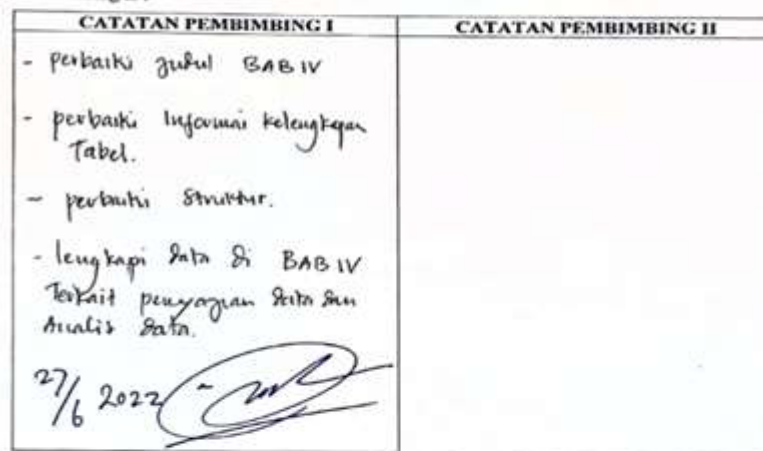 CATATAN PEMBIMBING I
CATATAN PEMBIMBING II
- perbaiki judul BAB IV
- perbaiki Informasi kelengkapan
Tabel.
- perbaiki Struktur.
- lengkapi data di BAB IV
Terkait penyajian data dan
Analis data.
27/6 2022